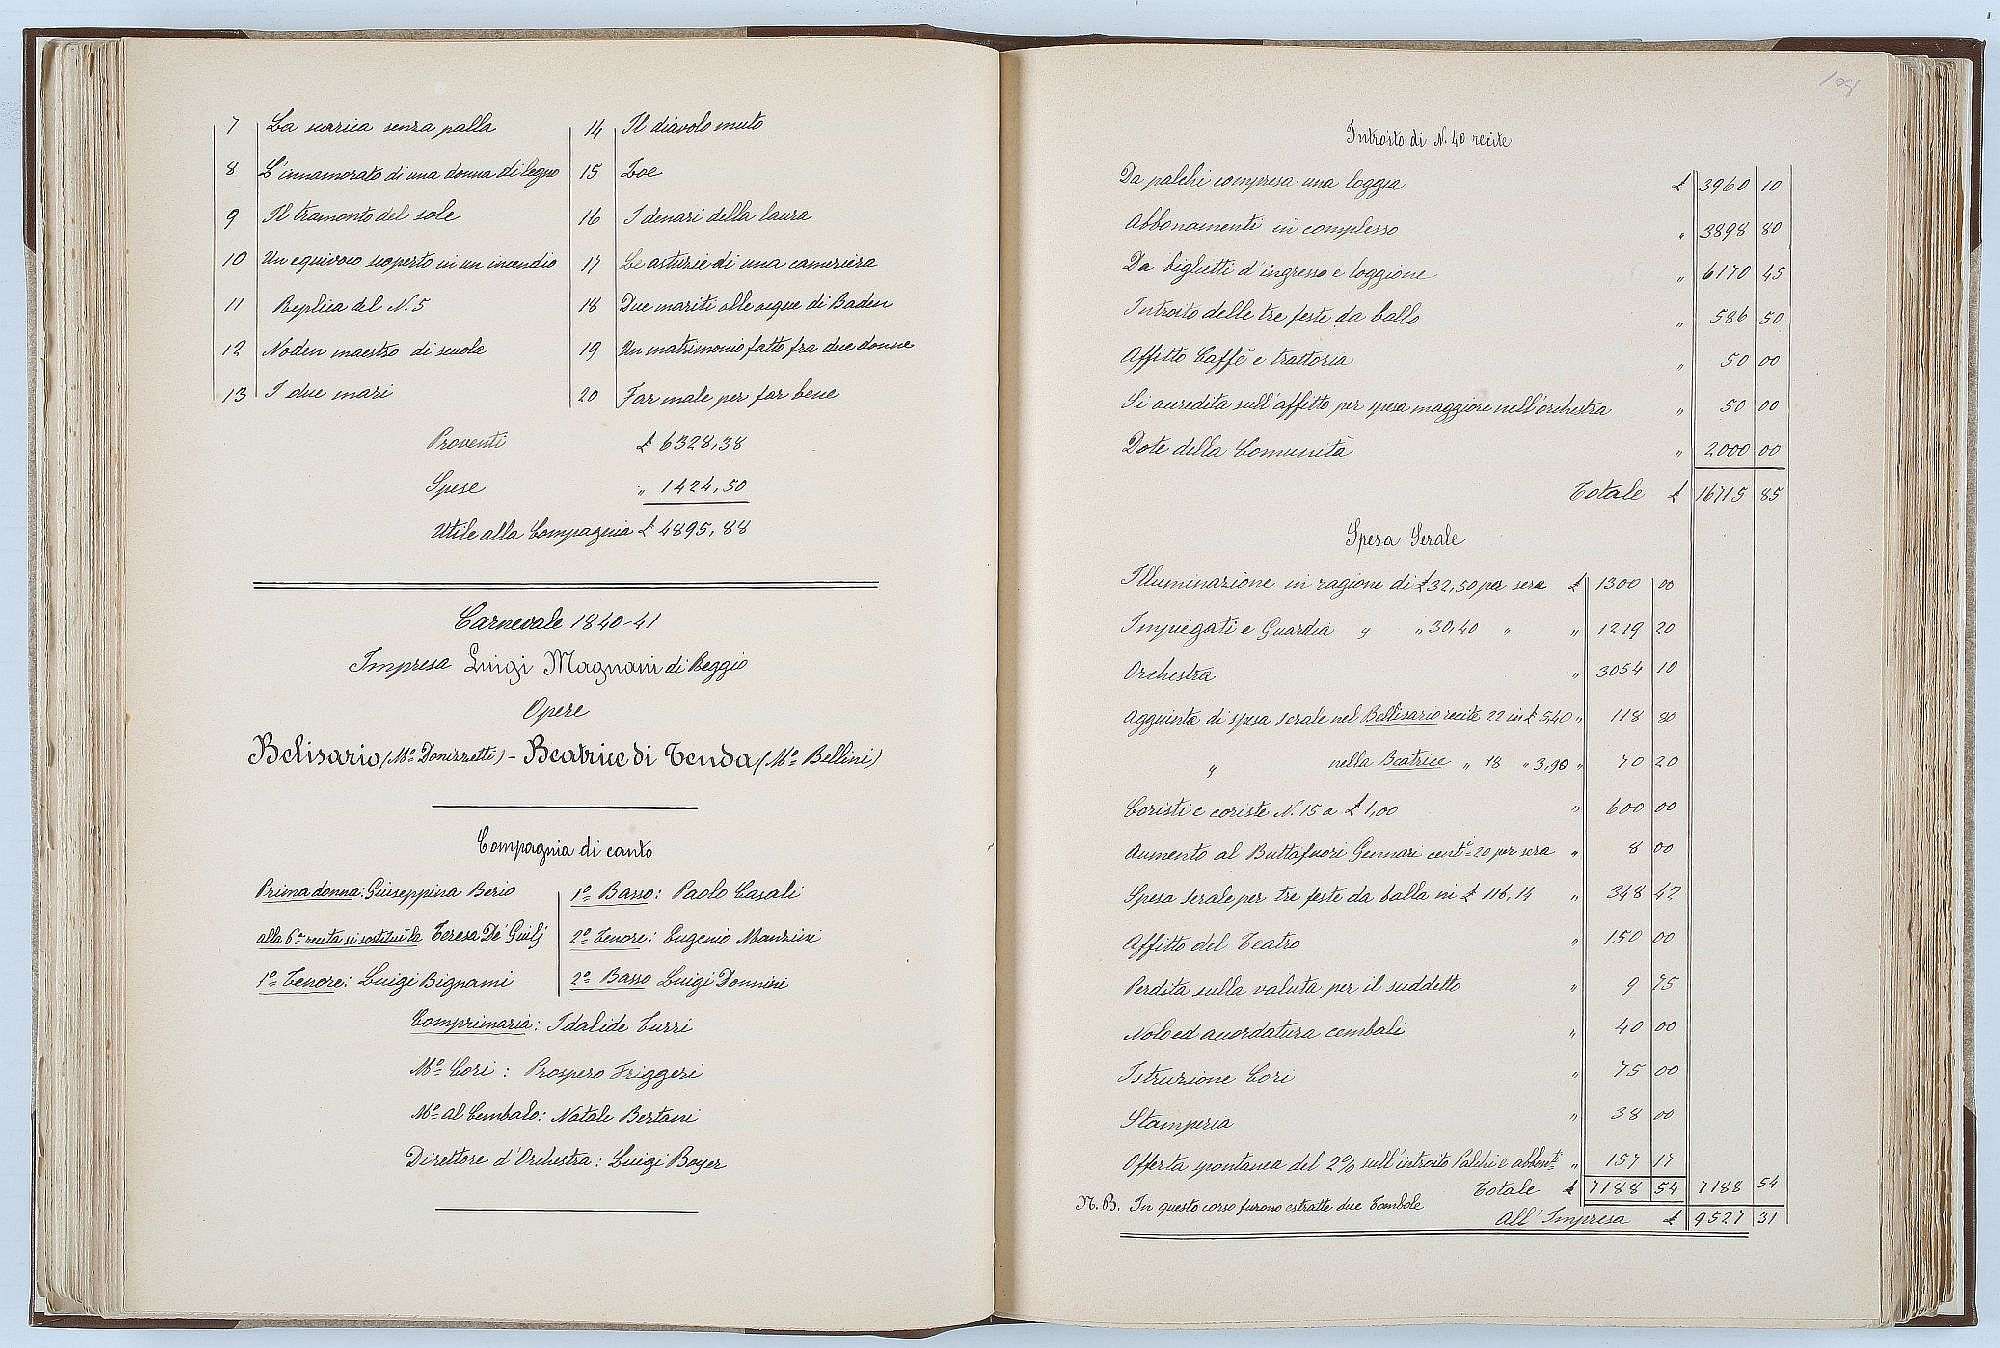 7 La scarica senza palla
8 L'innamorato di una donna di legno
9 Il tramonto del sole
10 Un equivoco scoperto in un incendio
11 Replica del N. 5
12 Noden maestro di scuola
13 I due mari
14 Il diavolo muto
15 Zoe
16 I denari della laura
17 Le astuzie di una cameriera
18 Due mariti alle acque di Baden
19 Un matrimonio fatto fra due donne
20 Far male per far bene
Proventi £ 6328,38
Spese " 1424,50
Utile alla Compagnia £ 4895,88
Carnevale 1840-41
Impresa Luigi Magnani di Reggio
Opere
Belisario (Mo Donizzetti) - Beatrice di Tenda (Mo Bellini)
Compagnia di canto
Prima donna: Giuseppina Berio
alla 6a recita si sostituì la Teresa De Giulj
1o Tenore: Luigi Bignami
1o Basso: Paolo Casali
2o Tenore: Eugenio Manzini
2o Basso Luigi Donnini
Comprimaria: Idalide Turri
Mo Cori: Prospero Friggeri
Mo al Cembalo: Natale Bertani
Direttore d'Orchestra: Luigi Boyer
Introito di N. 40 recite
Da palchi compresa una loggia £ 3960 10
Abbonamenti in complesso " 3898 80
Da biglietti d'ingresso e loggione " 6170 45
Introito delle tre feste da ballo " 586 50
Affitto Caffè e trattoria " 50 00
Si accredita sull'affitto per spesa maggiore nell'orchestra " 50 00
Dote della Comunità " 2000 00
Totale £ 16715 85
Spesa Serale
Illuminazione in ragione di £ 32,50 per sera £ 1300 00
Impiegati e Guardia " " 30,40 " " 1219 20
Orchestra " 3054 10
Aggiunta di spesa serale nel Bellisario recite 22 in £ 5,40 " 118 80
" nella Beatrice " 18 " 3,90 " 70 20
Coristi e coriste N. 15 a £ 1,00 " 600 00
Aumento al Buttafuori Gennari centi 20 per sera " 8 00
Spesa serale per tre feste da balla in £ 116,14 " 348 42
Affitto del Teatro " 150 00
Perdita sulla valuta per il suddetto " 9 75
Nolo ed accordatura cembali " 40 00
Istruzione Cori " 75 00
Stamperia " 38 00
Offerta spontanea del 2% sull'introito Palchi e abbonti " 157 17
Totale £ 7188 54 7188 54
N. B. In questo corso furono estratte due Tombole
All'Impresa £ 9527 31